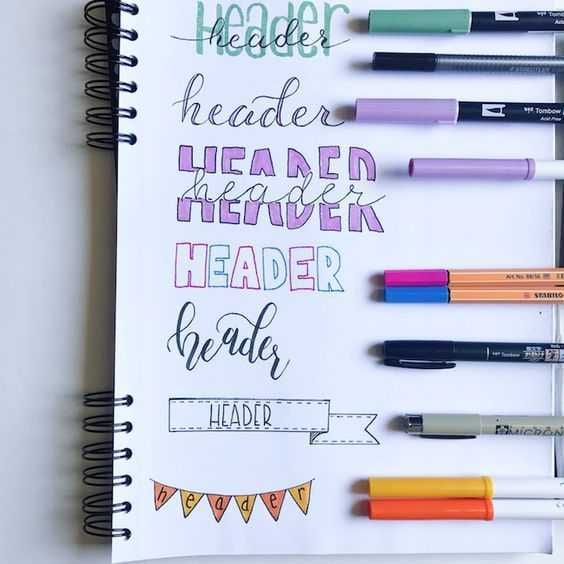 Header
header
header
HEADER
header
HEADER
header
HEADER
header
Tombow
Tombow
Acid Free
Art. No. 88/56
STABILO
Tombow
MICRON